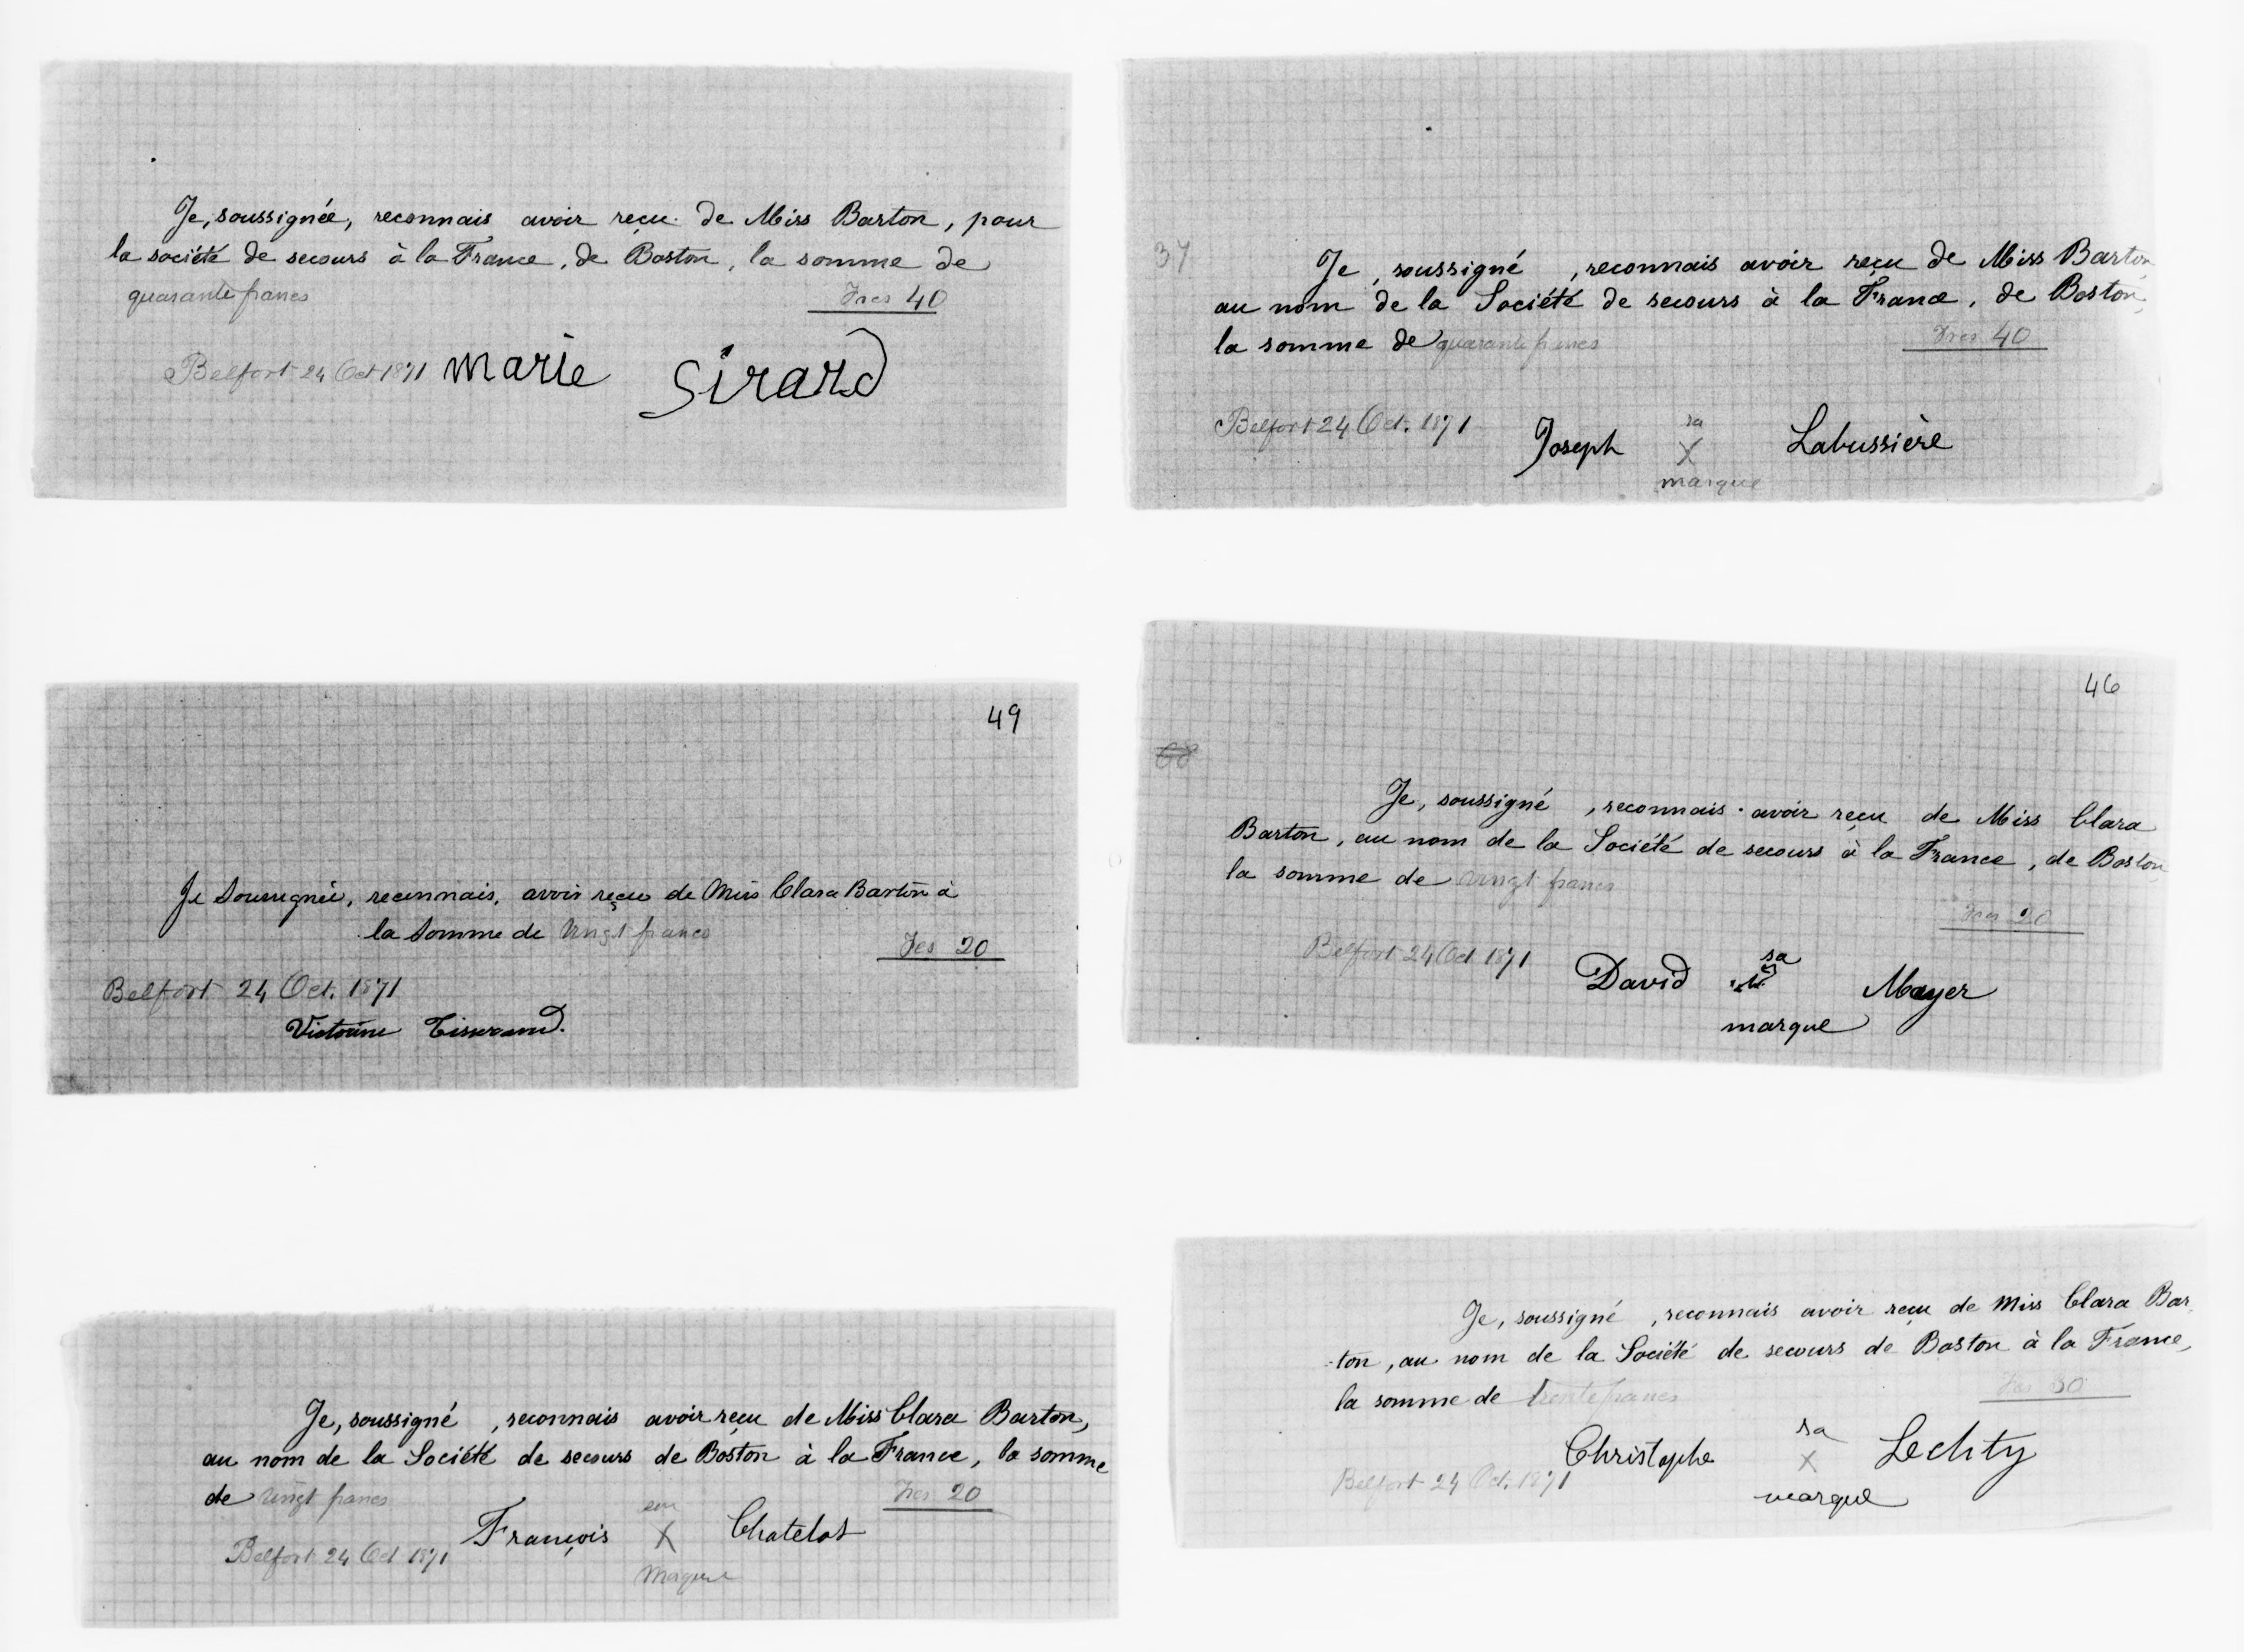 Je, soussignée, reconnais avoir reçu de Miss Barton, pour
la société de secours à la France, de Boston, la somme de
quarante francs Frcs 40
Belfort 24 Oct 1871 marie Sirard
37
Je, soussigné, reconnais avoir reçu de Miss Barton
au nom de la Société de secours à la France, de Boston,
la somme de quarante francs Frcs 40
Belfort 24 Oct. 1871 Joseph sa X marque Labussière
49
Je Soussignée, reconnais, avoir reçu de Miss Clara Barton à
la Somme de Vingt francs Fcs 20
Belfort 24 Oct. 1871
Victorine Tisserand.
46
Je, soussigné, reconnais avoir reçu de Miss Clara
Barton, au nom de la Société de secours à la France, de Boston
la somme de vingt francs
Frcs 20
Belfort 24 Oct 1871 David sa marque Mayer
Je, soussigné, reconnais avoir reçu de Miss Clara Barton,
au nom de la Société de secours de Boston à la France, la somme
de vingt francs Frcs 20
Belfort 24 Oct 1871 François X Chatelot
Je, soussigné, reconnais avoir reçu de Miss Clara Bar
-ton, au nom de la Société de secours de Boston à la France,
la somme de trente francs Fcs 30
Christophe sa X marque Lechty
Belfort 24 Oct. 1871